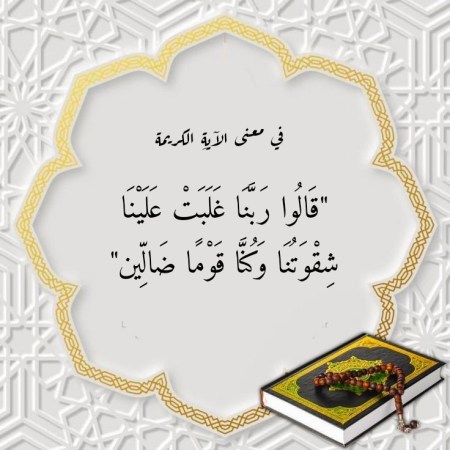 في معنى الآية الكريمة
"قَالُوا رَبَّنَا غَلَبَتْ عَلَيْنَا
شِقْوَتُنَا وَكُنَّا قَوْمًا ضَالِّين"